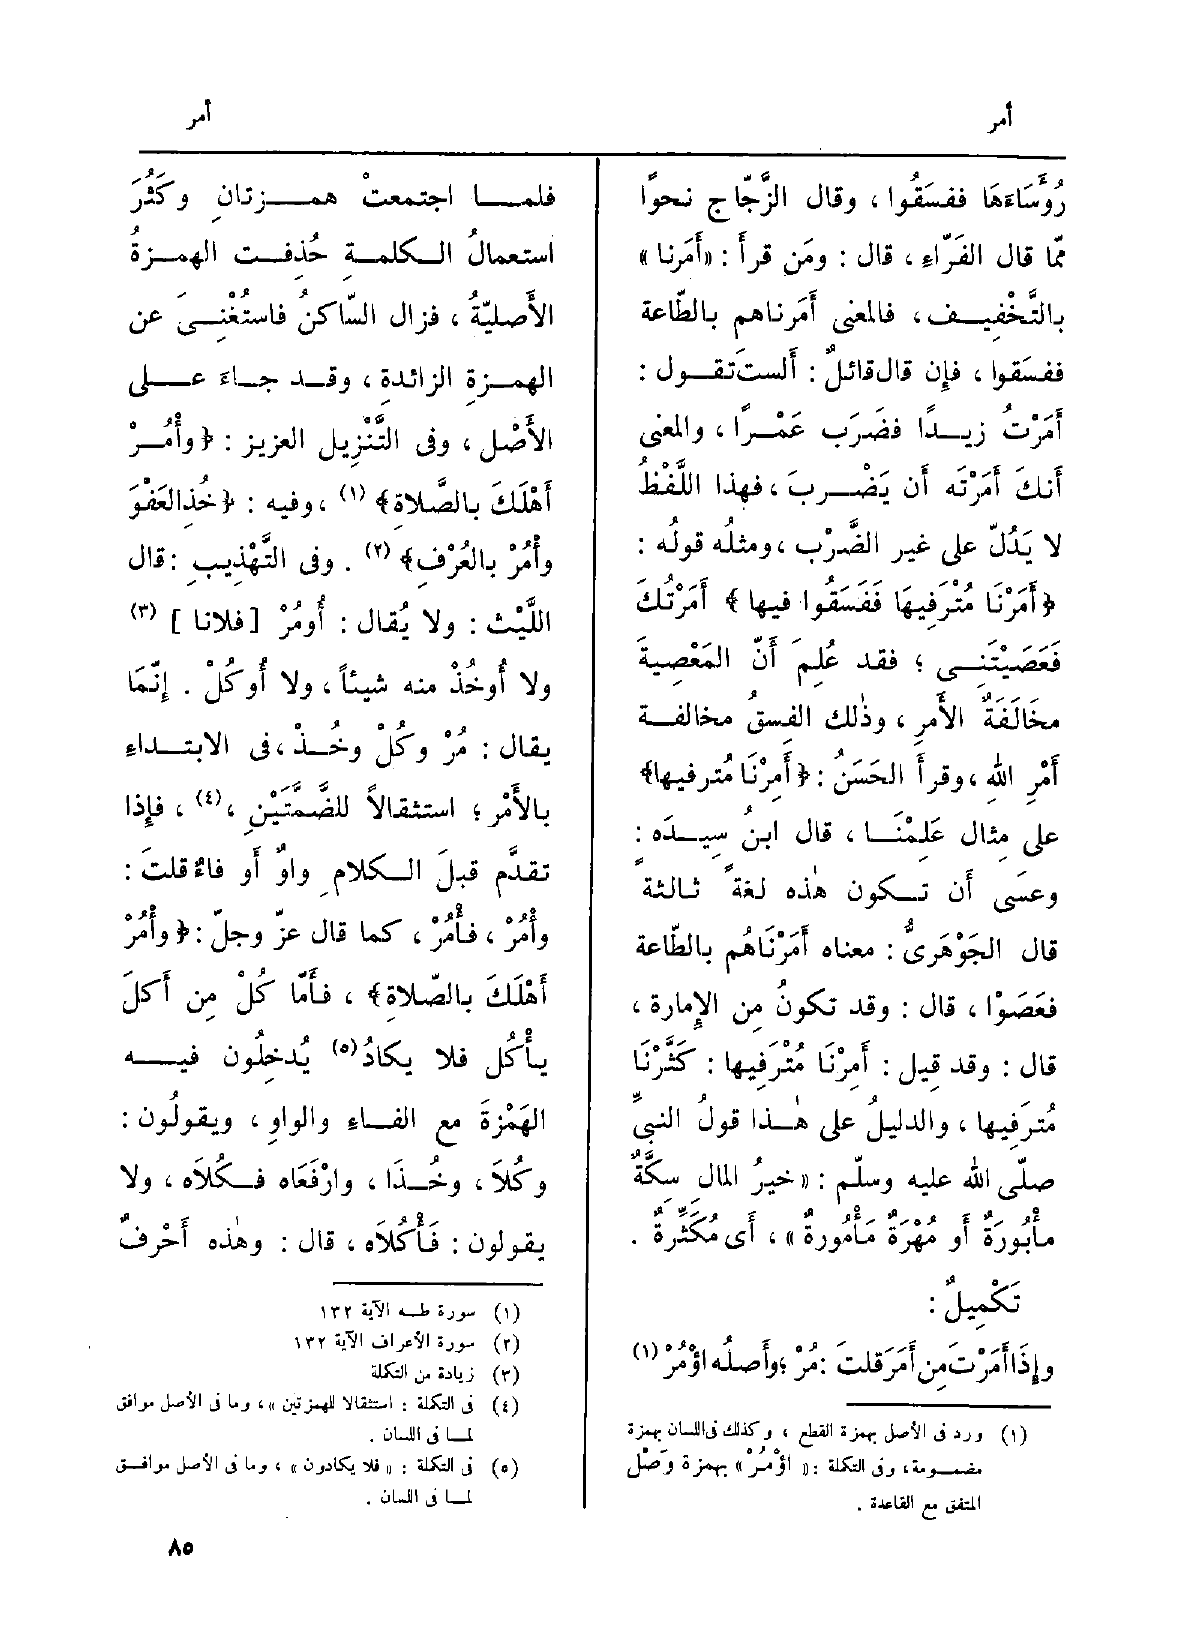 أمر
أمر
رُؤَسَاءَهَا ففسَقُوا ، وقال الزَّجّاج نحوًا
ممّا قال الفَرّاء ، قال : ومَن قرأ : «أَمَرنا»
بالتَّخْفِيف ، فالمعنى أَمَرناهم بالطّاعة
ففسَقوا ، فإن قال قائلٌ : أَلست تقول :
أَمَرْتُ زيدًا فضَرَب عَمْرًا ، والمعنى
أنكَ أَمَرْتَه أن يَضْرِبَ ، فهذا اللَّفْظُ
لا يَدُلّ على غير الضَّرْب ، ومثلُه قولُه :
﴿أَمَرْنَا مُتْرَفِيهَا فَفَسَقُوا فيها﴾ أَمَرْتُكَ
فَعَصَيْتَنِي ؛ فقد عُلِمَ أَنّ المَعْصِيةَ
مخَالَفَةُ الأَمرِ ، وذٰلك الفسقُ مخالفة
أَمْرِ اللهِ ، وقرأ الحَسَنُ : ﴿أَمِرْنَا مُترفيها﴾
على مثال عَلِمْنَا ، قال ابنُ سِيدَه :
وعسَى أن تكون هٰذه لغةً ثالثةً
قال الجَوْهَرىُّ : معناه أَمَرْنَاهُم بالطّاعة
فعَصَوْا ، قال : وقد تكونُ مِن الإِمارة ،
قال : وقد قيل : أَمِرْنَا مُتْرَفِيها : كَثَّرْنَا
مُترَفِيها ، والدليلُ على هٰذا قولُ النبىِّ
صلّى الله عليه وسلّم : «خيرُ المال سِكَّةٌ
مأْبُورَةٌ أو مُهْرَةٌ مَأْمُورةٌ» ، أى مُكَثَّرَةٌ .
تَكْمِيلٌ :
وإذا أَمَرْتَ مِن أَمَرَ قلتَ : مُرْ ؛ وأَصلُه اؤْمُرْ (١)
(١) ورد فى الأصل بهمزة القطع ، وكذلك فى اللسان بهمزة
مضمومة، وفى التكملة : «اؤْمُرْ» بهمزة وَصْل
المتفق مع القاعدة .
فلما اجتمعتْ همزتانِ وكَثُرَ
استعمالُ الكلمةِ حُذِفت الهمزةُ
الأَصليّةُ ، فزال السّاكنُ فاستُغْنِىَ عن
الهمزةِ الزائدةِ ، وقد جاءَ على
الأَصْلِ ، وفى التَّنْزِيل العزيز : ﴿وأْمُرْ
أَهْلَكَ بالصَّلاةِ﴾ (١) ، وفيه : ﴿خُذ العَفْوَ
وأْمُرْ بالعُرْفِ﴾ (٢) . وفى التَّهْذِيب : قال
اللَّيْث : ولا يُقال : أُومُرْ [فلانا] (٣)
ولا أُوخُذْ منه شيئاً ، ولا أُوكُلْ . إنّمَا
يقال : مُرْ وكُلْ وخُذْ ، فى الابتداءِ
بالأَمْرِ ؛ استثقالاً للضَّمَّتَيْنِ ، (٤) ، فإذا
تقدَّم قبلَ الكلامِ واوٌ أو فاءٌ قلتَ :
وأْمُرْ ، فأْمُرْ ، كما قال عزّ وجلّ : ﴿وأْمُرْ
أَهْلَكَ بالصّلاةِ﴾ ، فأَمّا كُلْ من أَكلَ
يأْكُل فلا يكادُ (٥) يُدخِلُون فيه
الهَمْزةَ مع الفاءِ والواوِ ، ويقولُون :
وكُلاَ ، وخُذَا ، وارْفَعَاه فكُلاَه ، ولا
يقولون : فَأْكُلاَه ، قال : وهٰذه أَحْرفٌ
(١) سورة طه الآية ١٣٢
(٢) سورة الأعراف الآية ١٣٢
(٣) زيادة من التكملة
(٤) فى التكملة : استثقالا للهمزتين »، وما فى الأصل موافق
لما فى اللسان .
(٥) فى التكملة : «فلا يكادون» ، وما فى الأصل موافق
لما فى اللسان .
٨٥